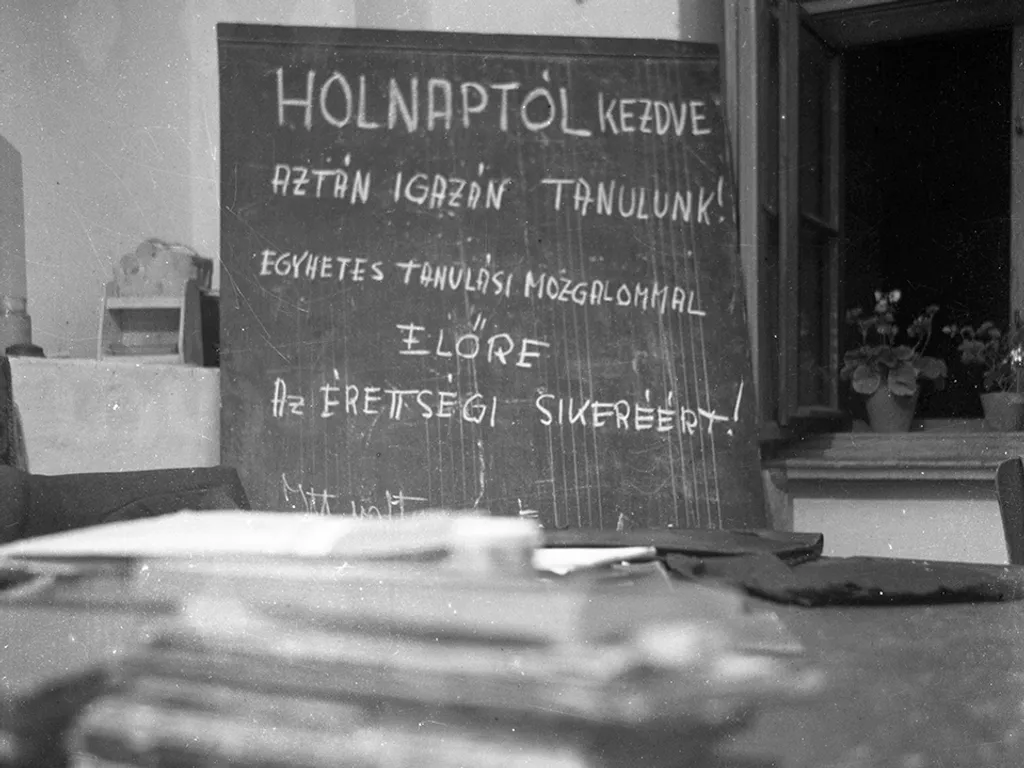 HOLNAPTÓL KEZDVE
AZTÁN IGAZÁN TANULUNK!
EGYHETES TANULÁSI MOZGALOMMAL
ELŐRE
Az ÉRETTSÉGI SIKERÉÉRT!